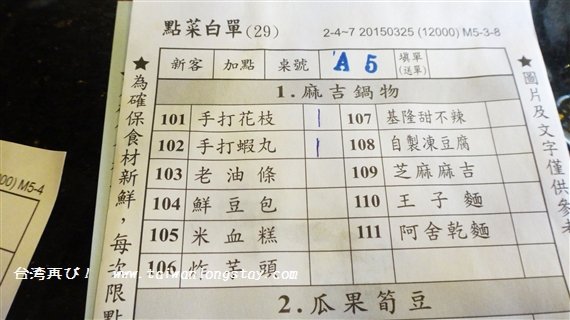 點菜白單(29)
2-4~7 20150325 (12000) M5-3-8
新客 加點 桌號 A5 填單(送單)
★為確保食材新鮮，每次限點
★圖片及文字僅供參考
1.麻吉鍋物
101 手打花枝 | 107 基隆甜不辣
102 手打蝦丸 | 108 自製凍豆腐
103 老油條 109 芝麻麻吉
104 鮮豆包 110 王子麵
105 米血糕 111 阿舍乾麵
106 炸芋頭
2.瓜果筍豆
000) M5-4
台湾再び！ www.taiwanlongstay.com